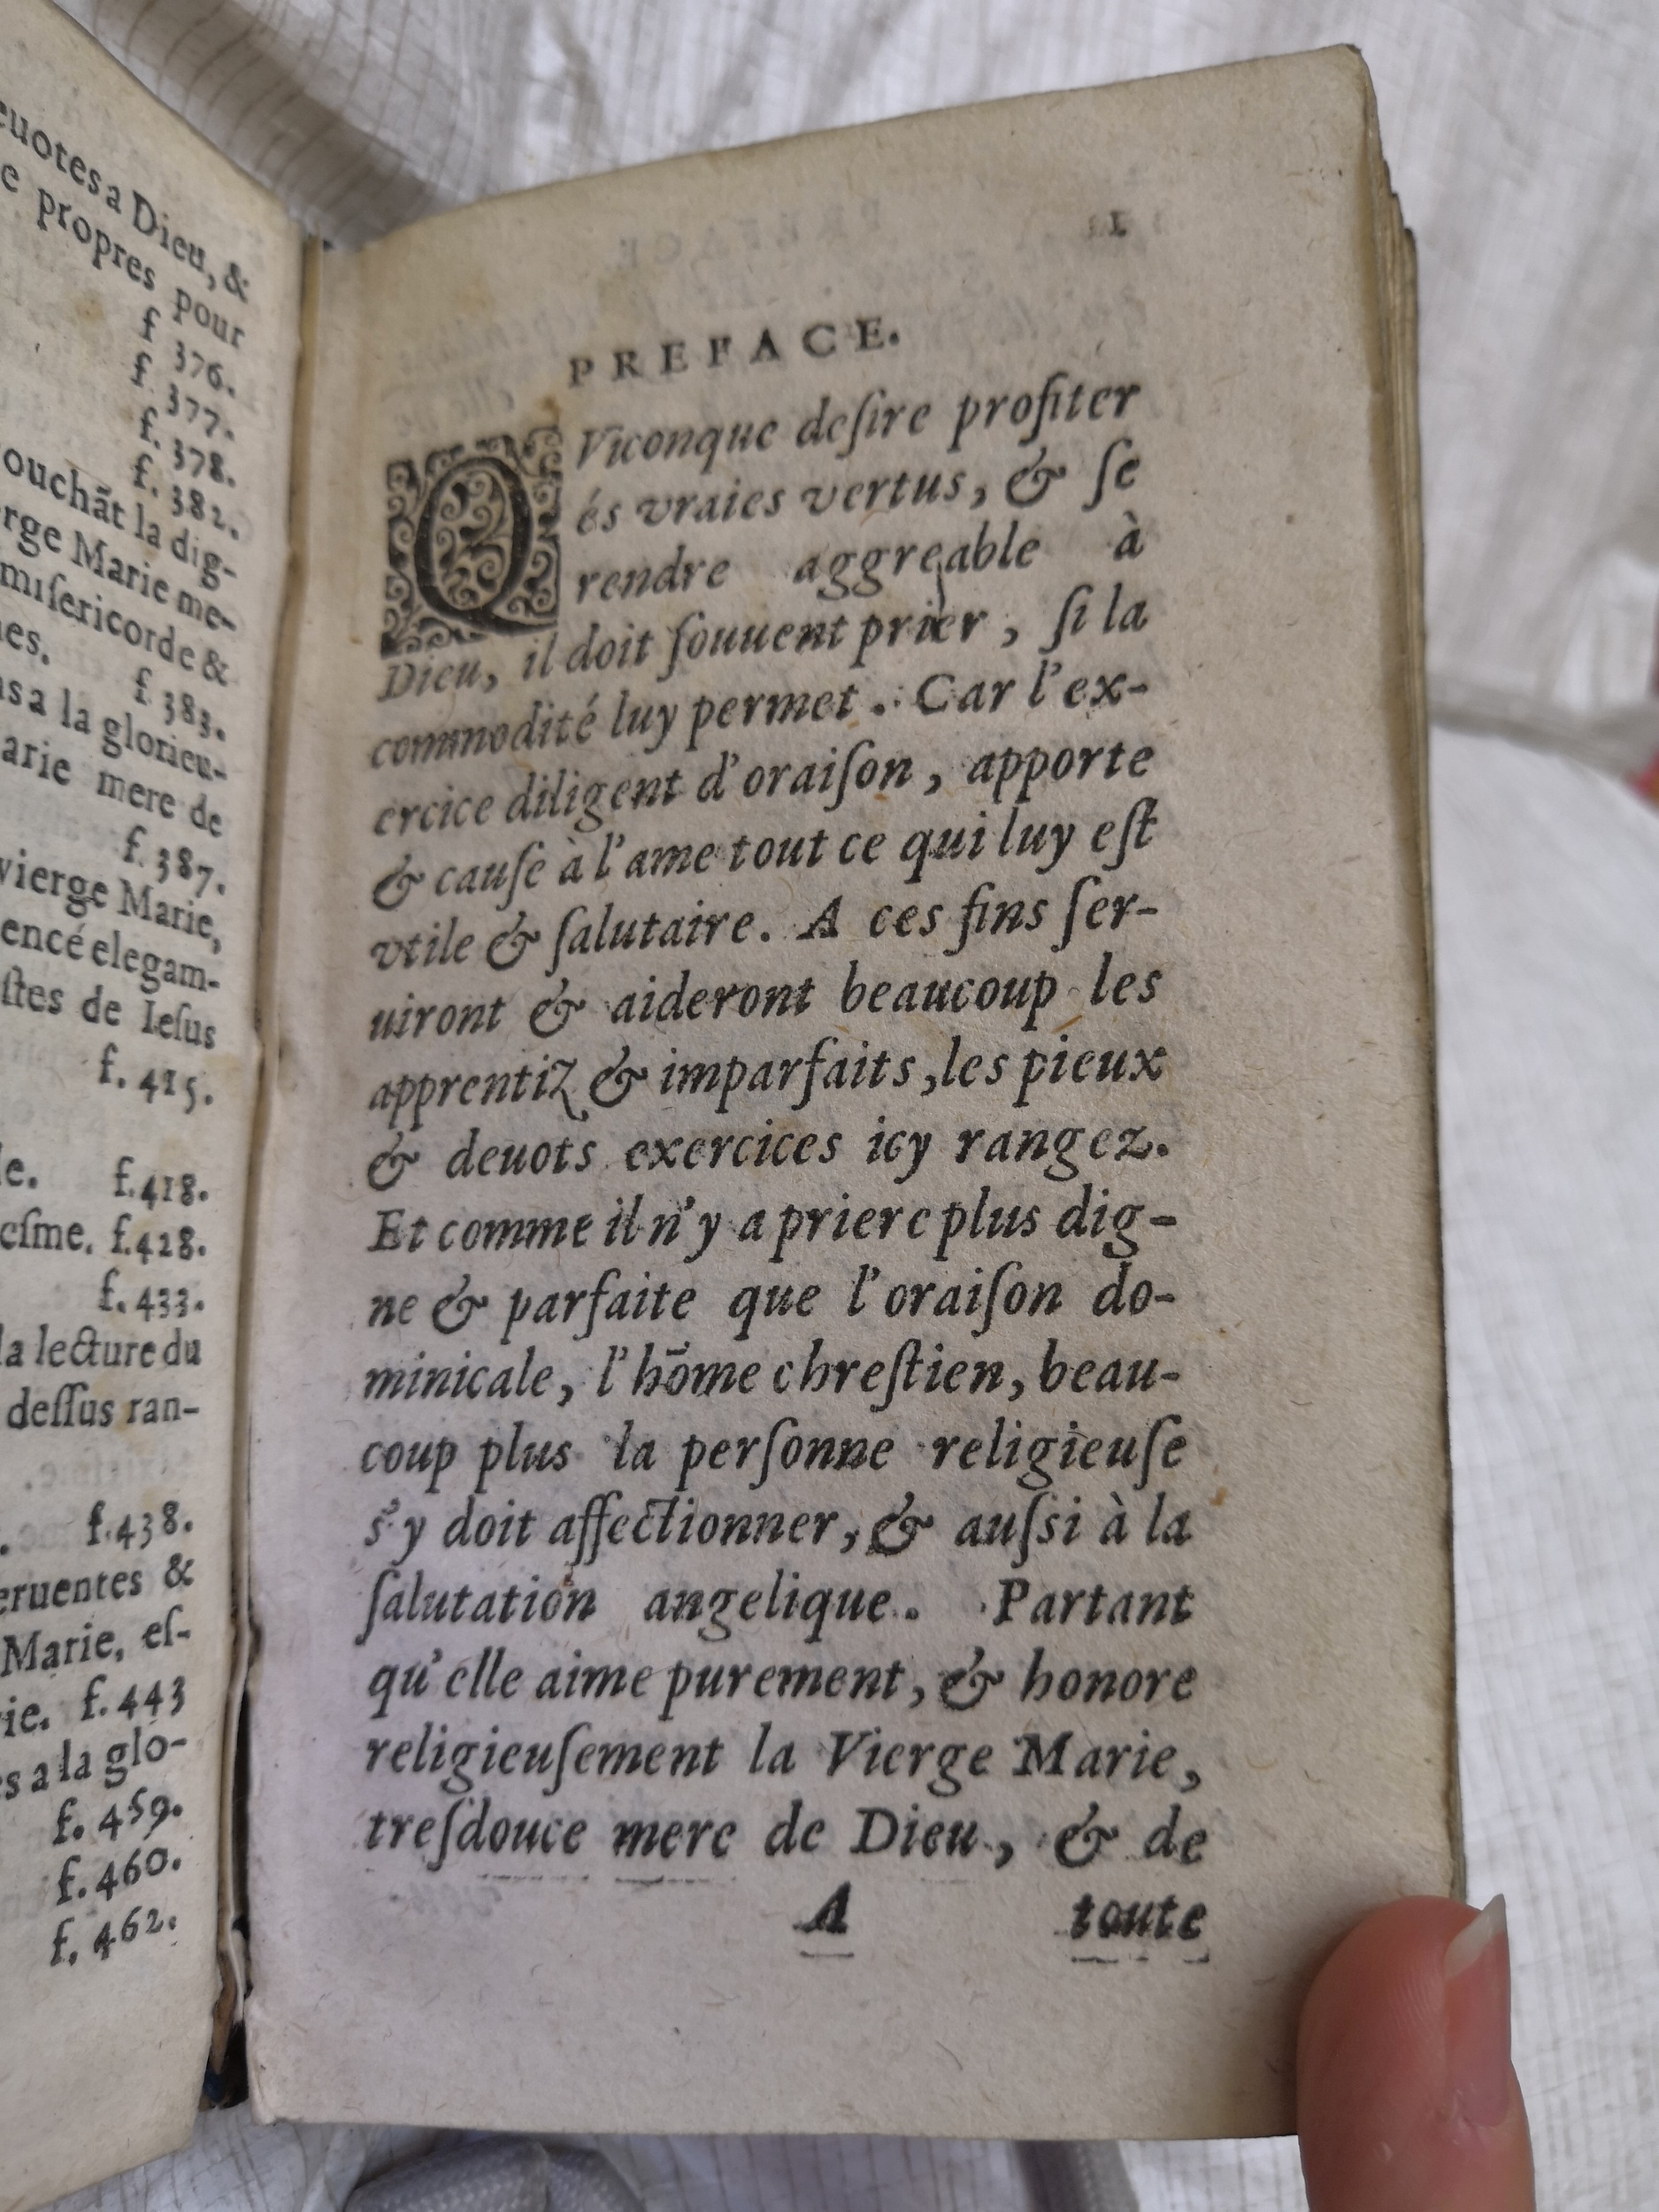 euotes a Dieu, &
e propres pour
f 376.
f. 377.
f. 378.
f. 382.
ouchāt la dig-
rge Marie me-
miſericorde &
es. f. 383.
s a la glorieu-
arie mere de
f. 387.
vierge Marie,
encé elegam-
ſtes de Ieſus
f. 415.
e. f. 418.
eſme. f. 428.
f. 433.
la lecture du
deſſus ran-
f. 438.
eruentes &
Marie, eſ-
ie. f. 443
s a la glo-
f. 459.
f. 460.
f. 462.
1
PREFACE.
QViconque deſire profiter
és vraies vertus, & ſe
rendre aggreable à
Dieu, il doit ſouuent prier, ſi la
commodité luy permet. Car l'ex-
ercice diligent d'oraiſon, apporte
& cauſe à l'ame tout ce qui luy eſt
vtile & ſalutaire. A ces fins ſer-
uiront & aideront beaucoup les
apprentiz & imparfaits, les pieux
& deuots exercices icy rangez.
Et comme il n'y a priere plus dig-
ne & parfaite que l'oraiſon do-
minicale, l'hōme chreſtien, beau-
coup plus la perſonne religieuſe
s'y doit affectionner, & auſsi à la
ſalutation angelique. Partant
qu'elle aime purement, & honore
religieuſement la Vierge Marie,
treſdouce mere de Dieu, & de
A toute